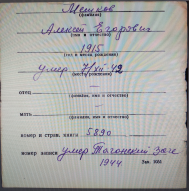 Мешков
(фамилия)
Алексей Егорович
(имя и отчество)
1915
(год и место рождения)
умер 7/XII-42
(место рождения)
отец
(фамилия, имя и отчество)
мать
(фамилия, имя и отчество)
номер и страи. книги 5890
номер записи умер Таганский Загс
1944
Зак. 1068